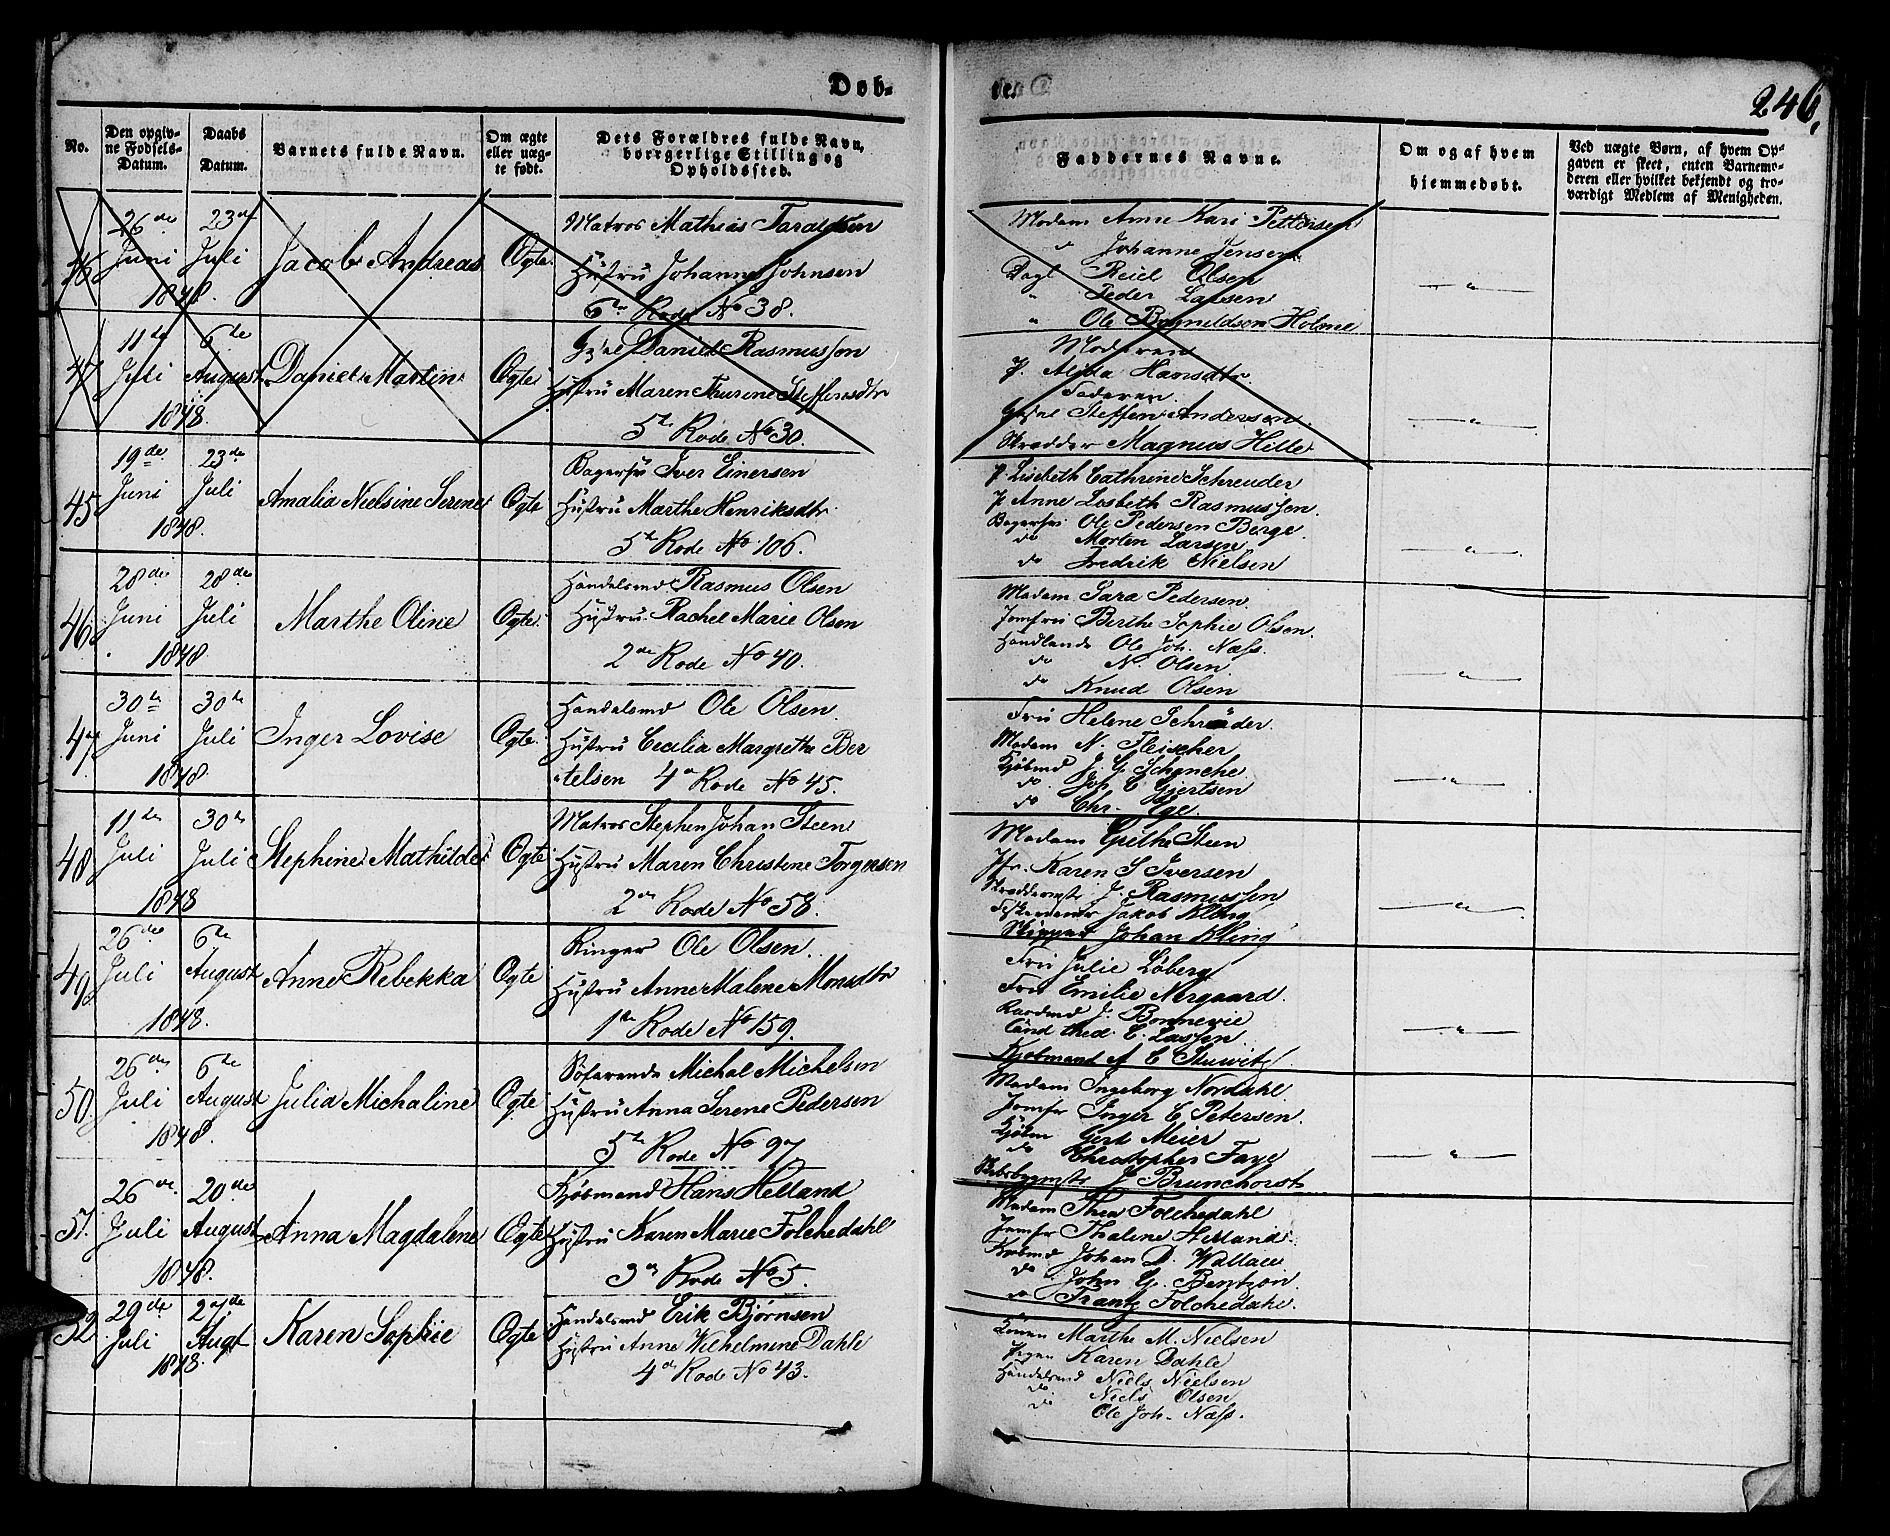 Døb-
te.
246.
No.
Den opgiv-
ne Fødsels-
Datum.
Daabs
Datum.
Barnets fulde Navn.
Om ægte
eller uæg-
te født.
Dets Forældres fulde Navn,
borgerlige Stilling og
Opholdssted.
Faddernes Navne.
Om og af hvem
hjemmedøbt.
Ved uægte Børn, af hvem Op-
gaven er skeet, enten Barnemo-
deren eller hvilket bekjendt og tro-
værdigt Medlem af Menigheden.
46
26de Juni 1848.
23de Juli
Jacob Andreas
Ægte
Matros Mathias Taraldsen
Hustru Johanne Johnsen
6te Rode No 38.
Madam Anne Kari Pettersen
do Johanne Jensen
Dagl Reiel Olsen
" Peder Larsen
" Ole Holme
47
11te Juli 1848.
6te August
Daniel Martin
Ægte
Daniel Rasmussen
Hustru Maren Thurine Steffensdtr
5te Rode No 30.
Moderen
P. Alida Hansdtr.
Faderen.
Steffen Andersen
Skrædder Magnus Hille
45
19de Juni 1848.
23de Juli
Amalia Nielsine Serene
Ægte
Bagersv Iver Einersen
Hustru Marthe Henriksdtr.
5te Rode No 106.
P Lisebeth Cathrine Schreuder
P Anne Lisbeth Rasmussen.
Bagersv Ole Pedersen Berge.
do Morten Larsen
do Fredrik Nielsen
46
28de Juni 1848.
28de Juli
Marthe Oline
Ægte.
Handelsmd Rasmus Olsen
Hustru Rachel Marie Olsen
2de Rode No 40.
Madam Sara Pedersen.
Jomfru Berthe Sophie Olsen.
Handlende Ole Joh. Næss.
do N. Olsen
do Knud Olsen
47
30te Juni 1848.
30te Juli
Inger Lovise
Ægte.
Handelsmd Ole Olsen.
Hustru Cecilia Margrethe Ber
telsen 4de Rode No 45.
Fru Helene Schrøder.
Madam N. Fleischer
Kjøbmd J. G. Schanche
do Joh C Giertsen
do Chr. Ege.
48
11te Juli 1848
30te Juli
Stephine Mathilde
Ægte
Matros Stephen Johan Steen
Hustru Maren Christine Torgersen
2den Rode No 58.
Madam Grethe Steen
Jfr. Karen S Iversen
Skræddermst J. Rasmussen
Jakob Kling
Skipper Johan Kling
49
26de Juli 1848.
6te August
Anne Rebekka
Ægte
Ringer Ole Olsen.
Hustru Anne Malene Monsdtr
1ste Rode No 159.
Fru Julie Løberg
Fru Emilie Nergaard.
J. Bonnevie
Cand theol. C. Lassen
Kjøbmand A C Stuwitz.
50
26de Juli 1848.
6te August
Julia Michaline
Ægte
Søfarende Michal Michelsen
Hustru Anna Serene Pedersen
5te Rode No 97
Madam Ingeborg Nordahl.
Jomfr Inger C Petersen.
Kjøbm Gert Meier
do Christopher Faye
Skibsbygmstr J Brunchorst
51.
26de Juli 1848.
20de August
Anna Magdalene
Ægte
Kjøbmand Hans Helland
Hustru Karen Marie Folchedahl
3de Rode No 5.
Madam Thea Folchedahl
Jomfr Thaline Helland.
Kjøbmd Johan D. Wallace
do John G. Bentzon
do Frantz Folchedahl.
52
29de Juli 1848.
27de Augt
Karen Sophie
Ægte
Handelsmd Erik Bjørnsen
Hustru Anne Wilhelmine Dahle
4de Rode No 43.
Konen Marthe M. Nielsen
Pigen Karen Dahle
Handelsmd Niels Nielsen
do Niels Olsen
do Ole Joh. Næss.